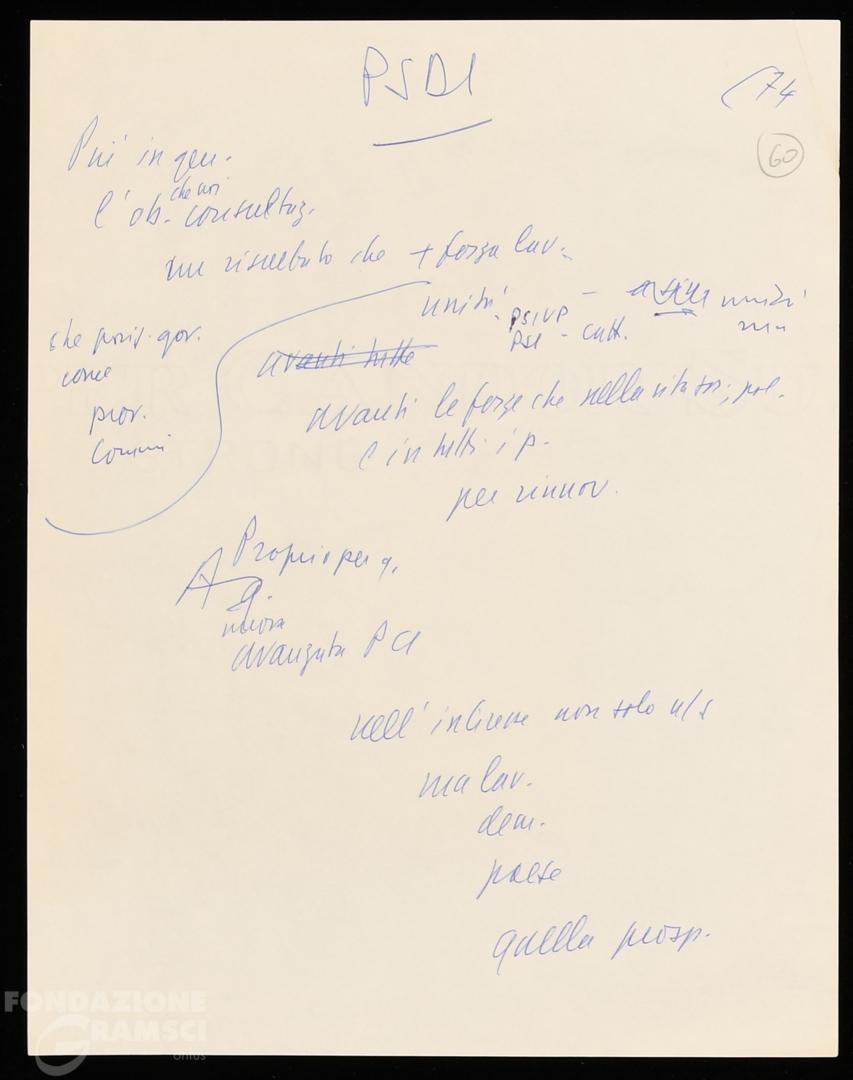 PSDI
(74
60
Più in gen.
che noi
l' ob. consultaz.
un risultato che + forza lav.
unità PSIUP - unità
PSI - catt.
che posiz. gov.
come
prov.
comuni
avanti tutte
avanti le forze che nella vita soc., pol.
e in tutti i p.
per rinnov.
Proprio per q.
A q.
nuova
avanzata PCI
nell' interesse non solo n/s
ma lav.
dem.
paese
quella prosp.
FONDAZIONE
GRAMSCI
onlus